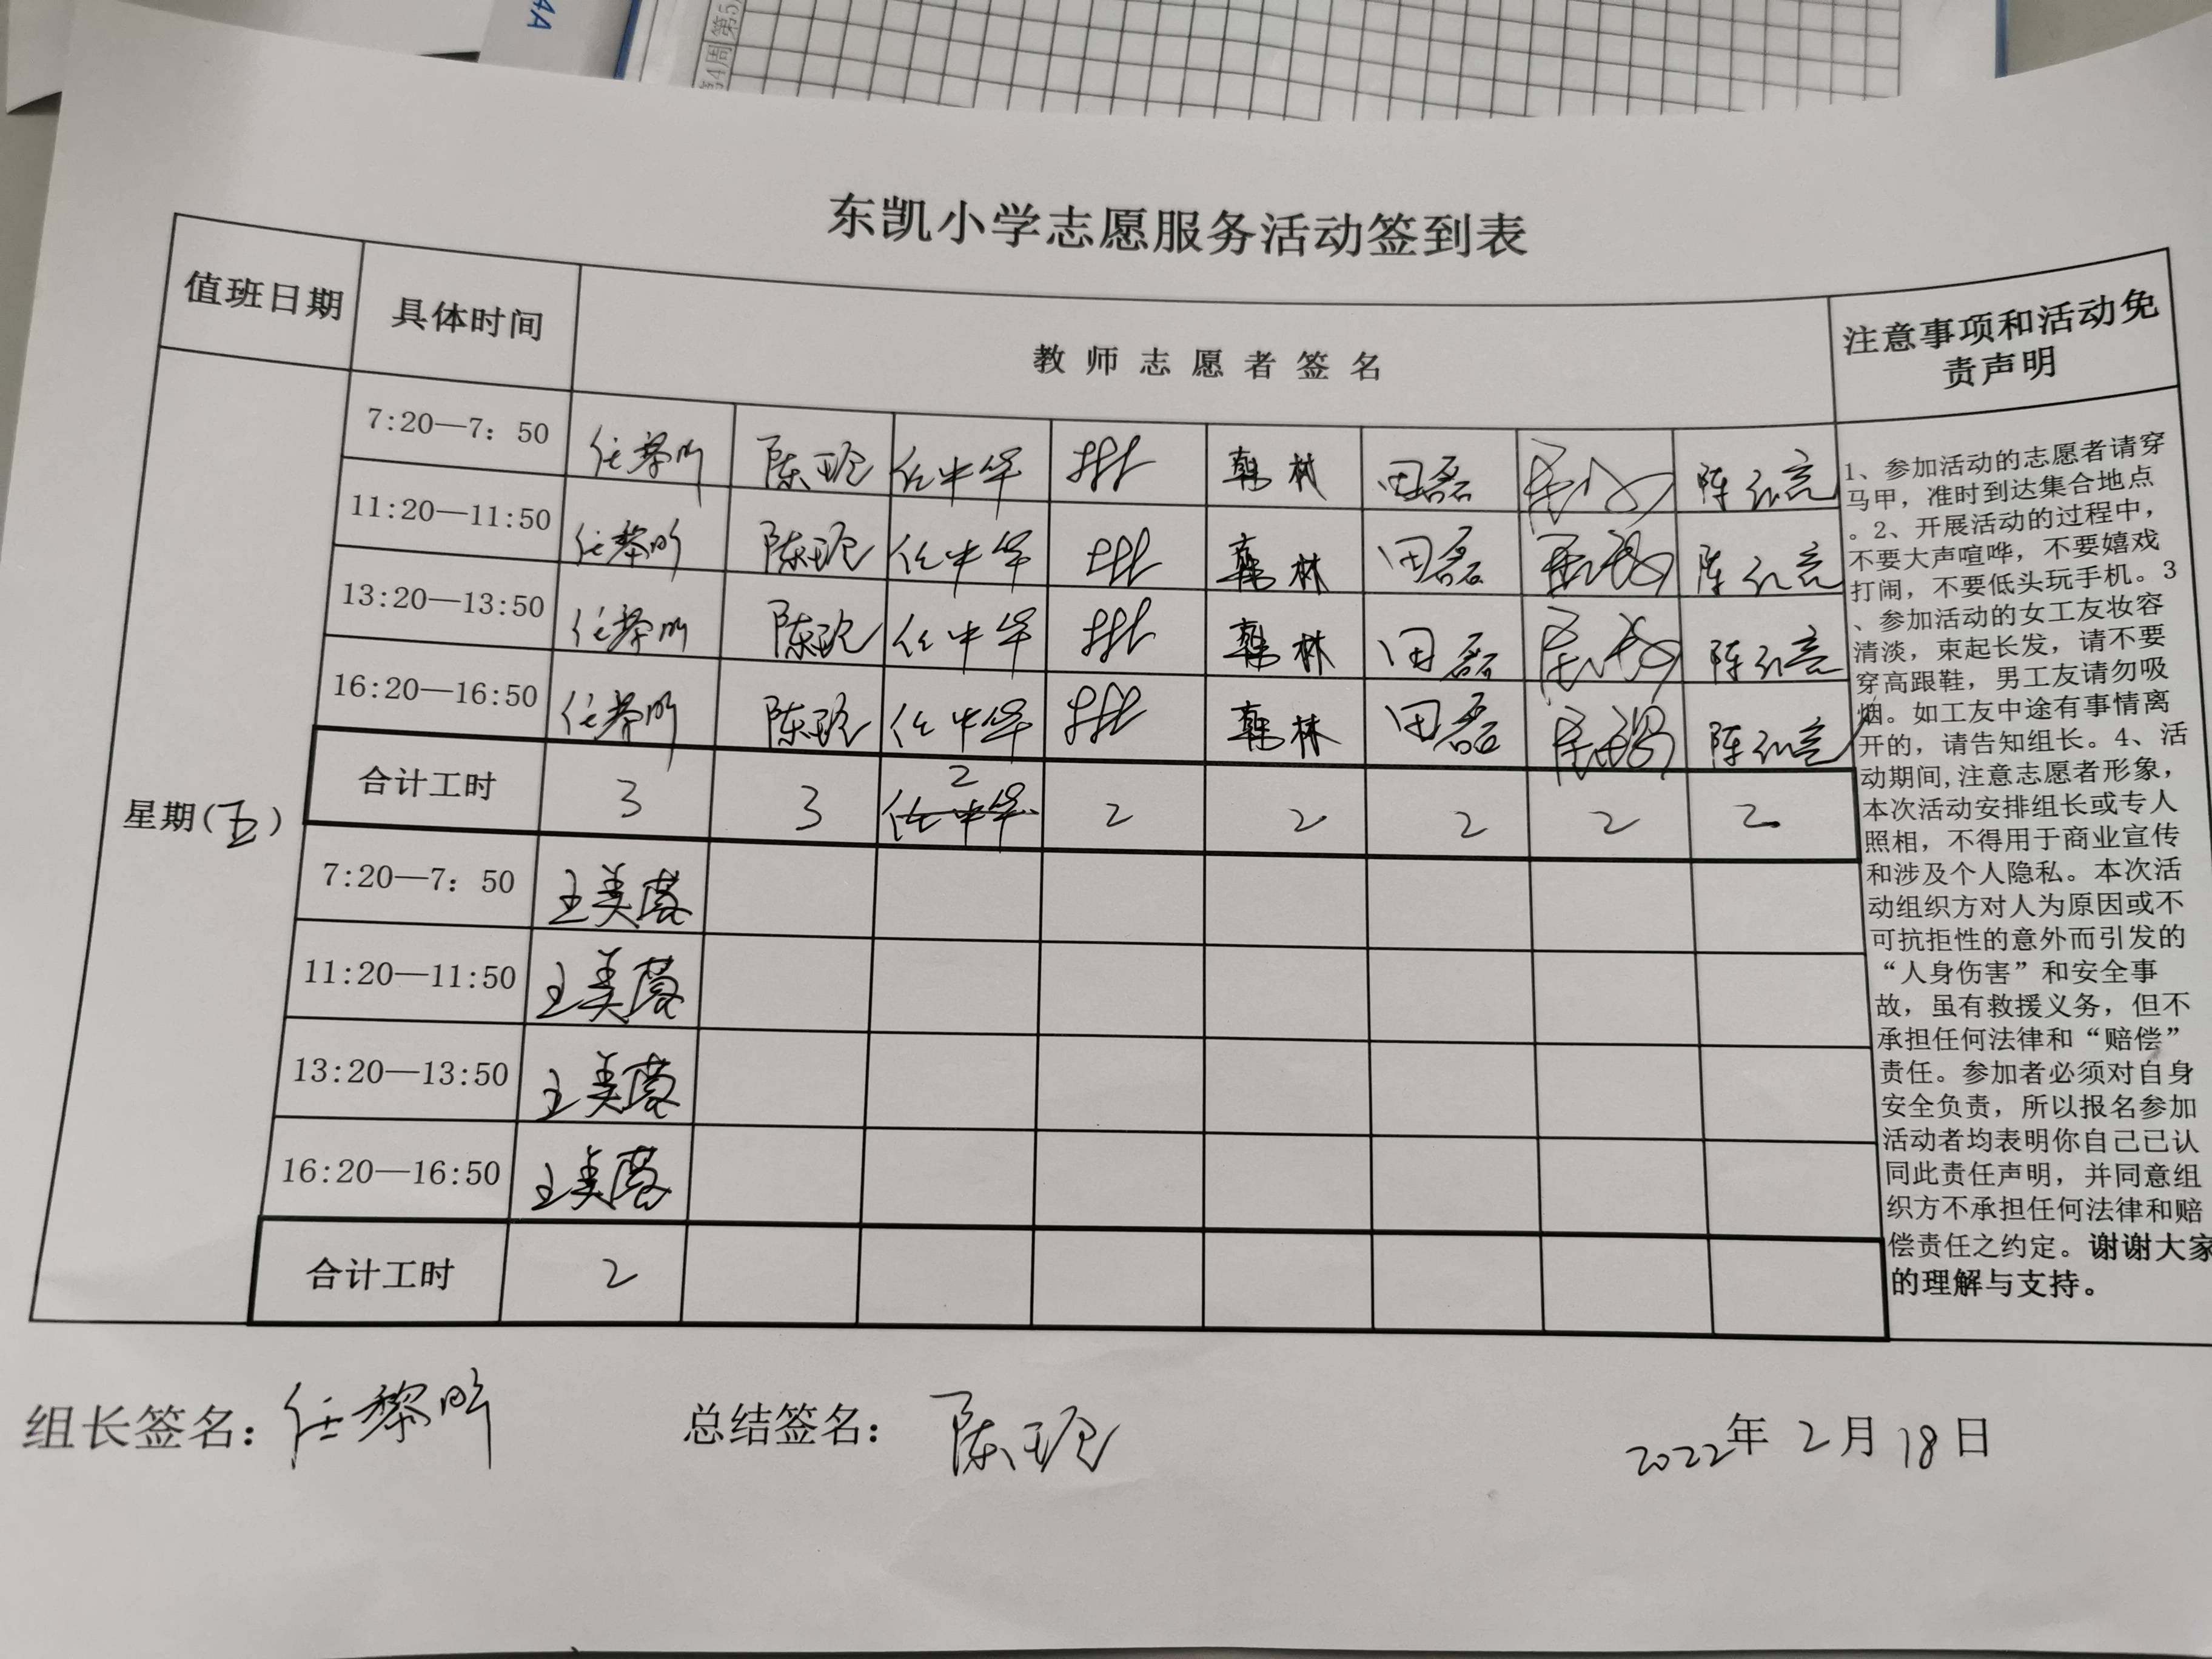 4A
第4周 第5
东凯小学志愿服务活动签到表
值班日期 具体时间 教师志愿者签名 注意事项和活动免
责声明
7:20—7：50 任黎明 陈玲 任中华 韩林 田磊 陈红亮
11:20—11:50 任黎明 陈玲 任中华 韩林 田磊 陈红亮
13:20—13:50 任黎明 陈玲 任中华 韩林 田磊 陈红亮
16:20—16:50 任黎明 陈玲 任中华 韩林 田磊 陈红亮
合计工时 3 3 2 任中华 2 2 2 2 2
星期(五)
7:20—7：50 王美茵
11:20—11:50 王美茵
13:20—13:50 王美茵
16:20—16:50 王美茵
合计工时 2
1、参加活动的志愿者请穿
马甲，准时到达集合地点
。2、开展活动的过程中，
不要大声喧哗，不要嬉戏
打闹，不要低头玩手机。3
、参加活动的女工友妆容
清淡，束起长发，请不要
穿高跟鞋，男工友请勿吸
烟。如工友中途有事情离
开的，请告知组长。4、活
动期间,注意志愿者形象，
本次活动安排组长或专人
照相，不得用于商业宣传
和涉及个人隐私。本次活
动组织方对人为原因或不
可抗拒性的意外而引发的
“人身伤害”和安全事
故，虽有救援义务，但不
承担任何法律和“赔偿”
责任。参加者必须对自身
安全负责，所以报名参加
活动者均表明你自己已认
同此责任声明，并同意组
织方不承担任何法律和赔
偿责任之约定。谢谢大家
的理解与支持。
组长签名：任黎明 总结签名：陈玲 2022年2月18日